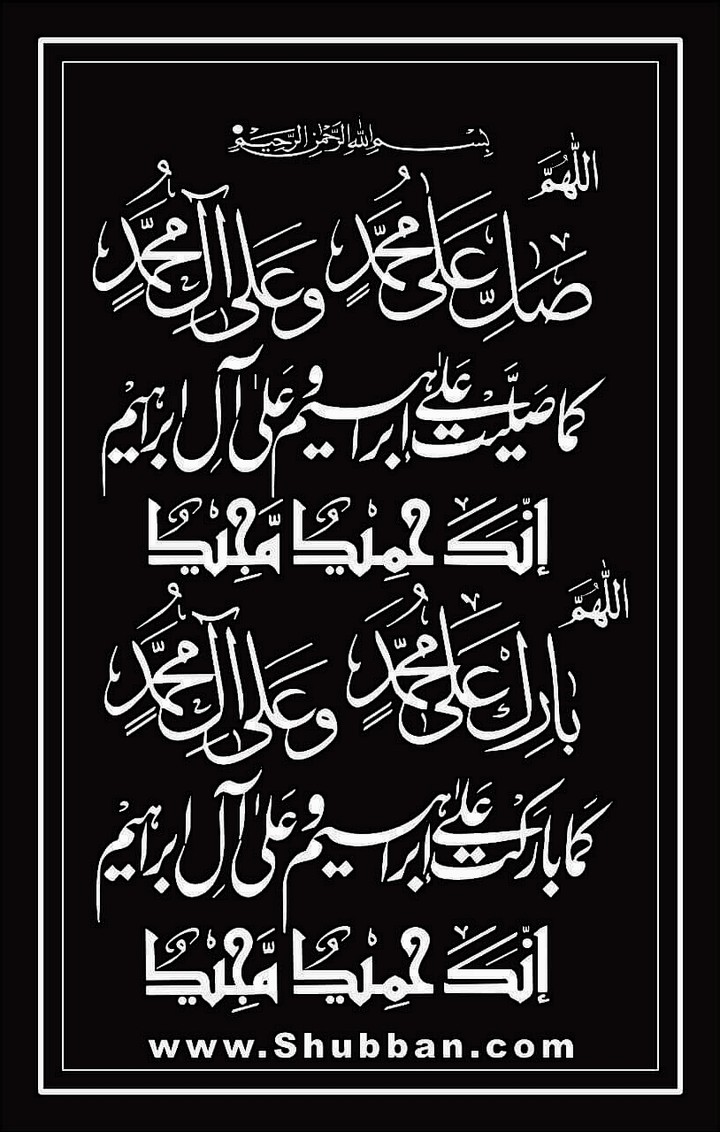 بِسْمِ اللهِ الرَّحْمٰنِ الرَّحِيْمِ
اَللّٰهُمَّ
صَلِّ عَلٰى مُحَمَّدٍ وَعَلٰى آلِ مُحَمَّدٍ
كَمَا صَلَّيْتَ عَلٰى اِبْرَاهِيْمَ وَعَلٰى آلِ اِبْرَاهِيْمَ
إِنَّكَ حَمِيْدٌ مَّجِيْدٌ
اَللّٰهُمَّ
بَارِكْ عَلٰى مُحَمَّدٍ وَعَلٰى آلِ مُحَمَّدٍ
كَمَا بَارَكْتَ عَلٰى اِبْرَاهِيْمَ وَعَلٰى آلِ اِبْرَاهِيْمَ
إِنَّكَ حَمِيْدٌ مَّجِيْدٌ
www.Shubban.com